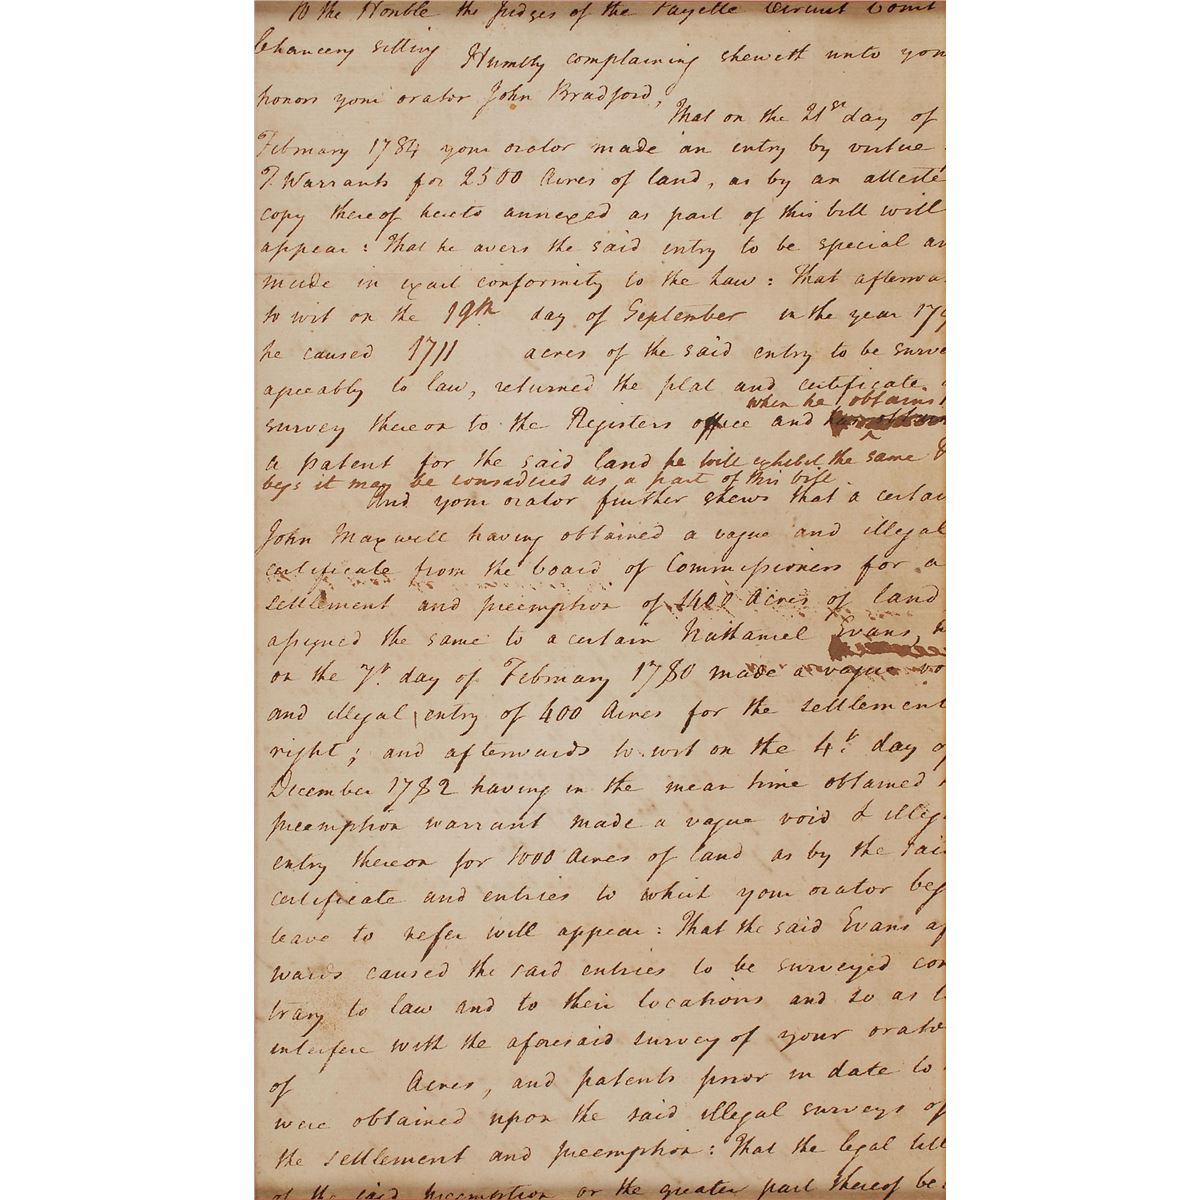 To the Honble the Judges of the Fayette Circuit Court
Chancery sitting Humbly complaining sheweth unto your
honors your orator John Bradford,
That on the 21st day of
February 1784 your orator made an entry by virtue
T. Warrants for 2500 Acres of land, as by an atteste
copy thereof hereto annexed as part of this bill will
appear: That he avers the said entry to be special an
made in exact conformity to the Law: That afterwa
to wit on the 19th day of September in the year 179
he caused 1711 acres of the said entry to be surve
agreeably to law, returned the plat and certificate
when he obtains
survey thereon to the Registers office and
a patent for the said land he will exhibit the same &
begs it may be considered as a part of this bill.
And your orator further shews that a certain
John Maxwell having obtained a vague and illegal
certificate from the board of Commissioners for a
settlement and preemption of 1400 Acres of land
assigned the same to a certain Nathaniel Evans,
on the 7th day of February 1780 made a vague vo
and illegal entry of 400 Acres for the settlement
right; and afterwards to wit on the 4th day of
December 1782 having in the mean time obtained
preemption warrant made a vague void & illeg
entry thereon for 1000 Acres of land as by the said
certificate and entries to which your orator beg
leave to refer will appear: That the said Evans af
wards caused the said entries to be surveyed con
trary to law and to their locations and so as to
interfere with the aforesaid survey of your orator
of Acres, and patents prior in date to
were obtained upon the said illegal surveys of
the settlement and preemption: That the legal titl
of the said preemption or the greater part thereof be